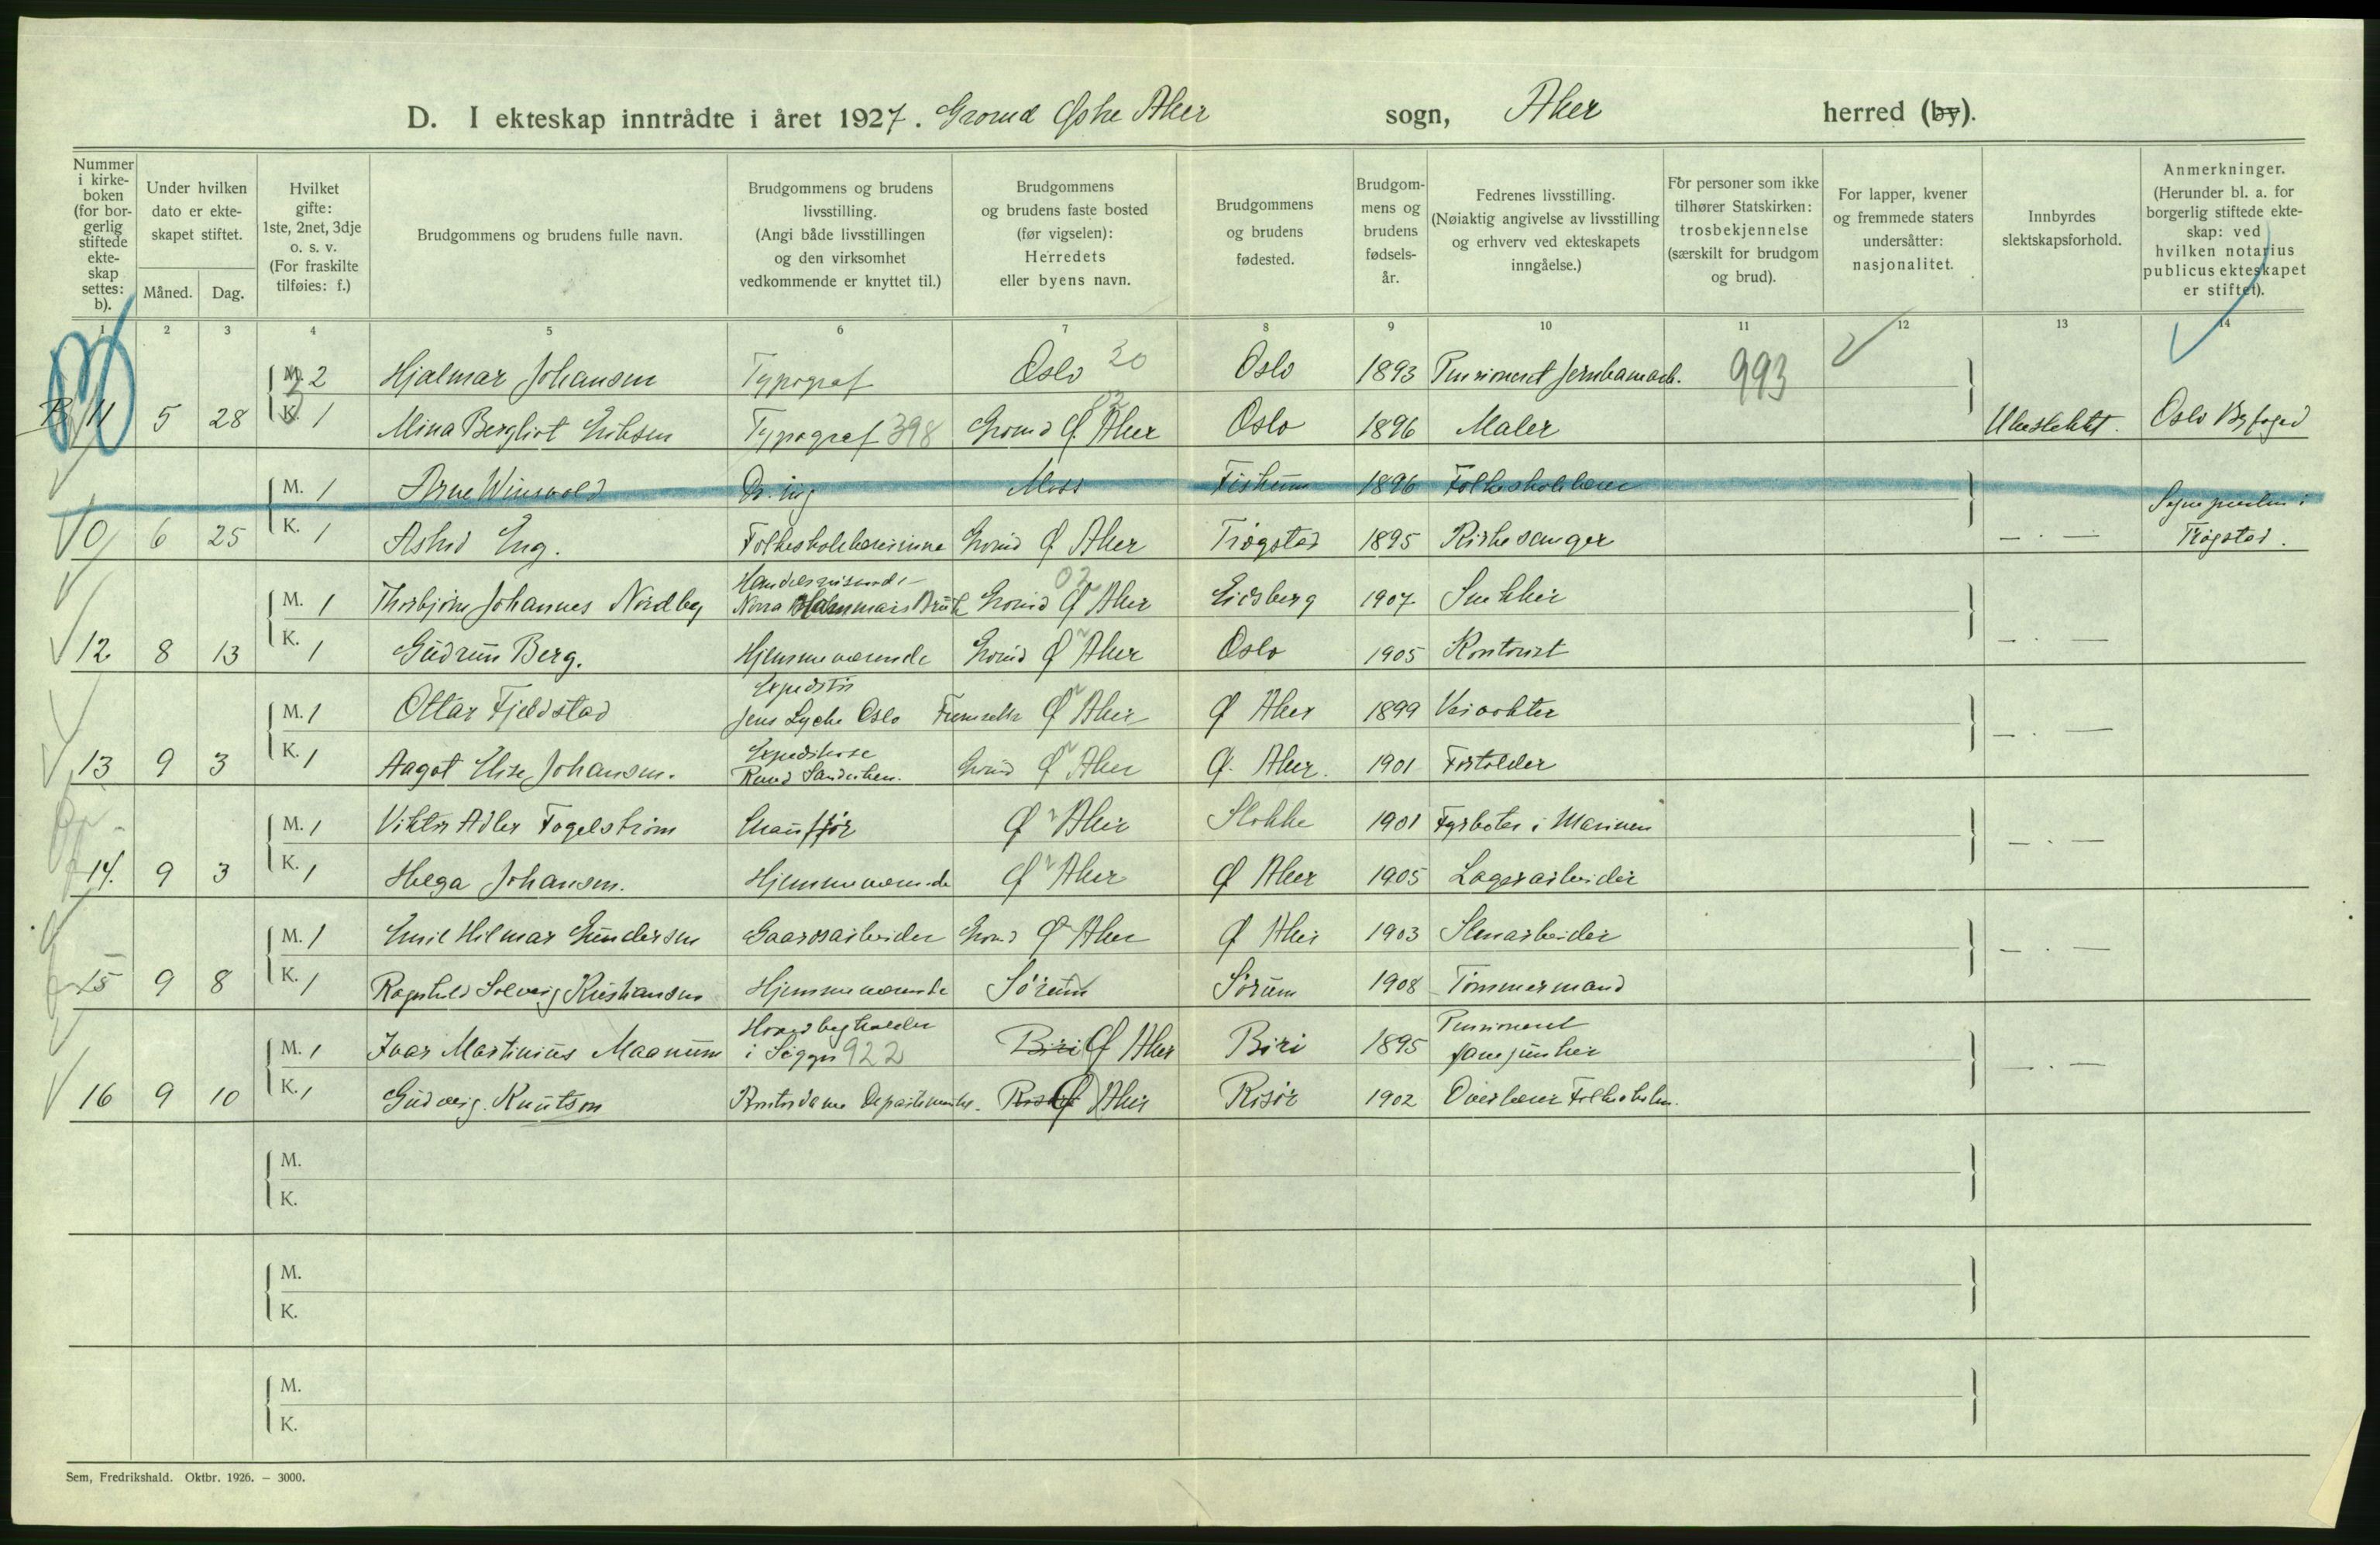 D. I ekteskap inntrådte i året 1927. Grorud Østre Aker sogn, Aker herred (by).
Nummer i kirke-boken (for bor-gerlig stiftede ekte-skap settes: b).
Under hvilken dato er ekte-skapet stiftet.
Måned. Dag.
Hvilket gifte: 1ste, 2net, 3dje o. s. v. (For fraskilte tilføies: f.)
Brudgommens og brudens fulle navn.
Brudgommens og brudens livsstilling. (Angi både livsstillingen og den virksomhet vedkommende er knyttet til.)
Brudgommens og brudens faste bosted (før vigselen): Herredets eller byens navn.
Brudgommens og brudens fødested.
Brudgom-mens og brudens fødsels-år.
Fedrenes livsstilling. (Nøiaktig angivelse av livsstilling og erhverv ved ekteskapets inngåelse.)
For personer som ikke tilhører Statskirken: trosbekjennelse (særskilt for brudgom og brud).
For lapper, kvener og fremmede staters undersåtter: nasjonalitet.
Innbyrdes slektskapsforhold.
Anmerkninger. (Herunder bl. a. for borgerlig stiftede ekte-skap: ved hvilken notarius publicus ekteskapet er stiftet).
1 2 3 4 5 6 7 8 9 10 11 12 13 14
M. 2 Hjalmar Johansen Typograf Oslo 20 Oslo 1893 Pensioneret 993
B 11 5 28 K. 1 Mina Bergliot Eriksen Typograf 398 Grorud Ø. Aker Oslo 1896 Maler Ubeslektet. Oslo Byfoged
M. 1 Arne Winsvold Dr. ing Moss Fiskum 1896 Folkeskolelærer
10 6 25 K. 1 Astrid Eng. Folkeskolelærerinne Grorud Ø Aker Trøgstad 1895 Kirkesanger — . — Sognepresten i Trøgstad.
M. 1 Thorbjørn Johannes Nordby Handelsreisende Nora Grorud Ø Aker 02 Eidsberg 1907 Snekker
12 8 13 K. 1 Gudrun Berg. Hjemmeværende Grorud Ø Aker Oslo 1905 Kontorist — . —
M. 1 Ottar Fjeldstad Expeditør Jens Lyche Oslo Furuset Ø Aker Ø Aker 1899 Veivokter
13 9 3 K. 1 Aagot Elise Johansen. Expeditrise Grorud Ø Aker Ø. Aker. 1901 Forvalter — . —
M. 1 Viktor Adler Fogelstrøm Chauffør Ø Aker Stokke 1901 Fyrbøter i Marinen
14. 9 3 K. 1 Helga Johansen. Hjemmeværende Ø Aker Ø Aker 1905 Lagerarbeider — . —
M. 1 Emil Hilmar Gundersen Gaardsarbeider Grorud Ø Aker Ø Aker 1903 Stenarbeider
15 9 8 K. 1 Ragnhild Solveig Kristiansen Hjemmeværende Sørum Sørum 1908 Tømmermand — . —
M. 1 Ivar Martinius Maanum Hovedbogholder i 922 Biri Ø Aker Biri 1895 Pensioneret fanejunker
16 9 10 K. 1 Gudveig Knutson Kontordame Departementet. Risør Ø Aker Risør 1902 Overlærer Folkeskolen. — . —
M.
K.
M.
K.
M.
K.
Sem, Fredrikshald. Oktbr. 1926. – 3000.